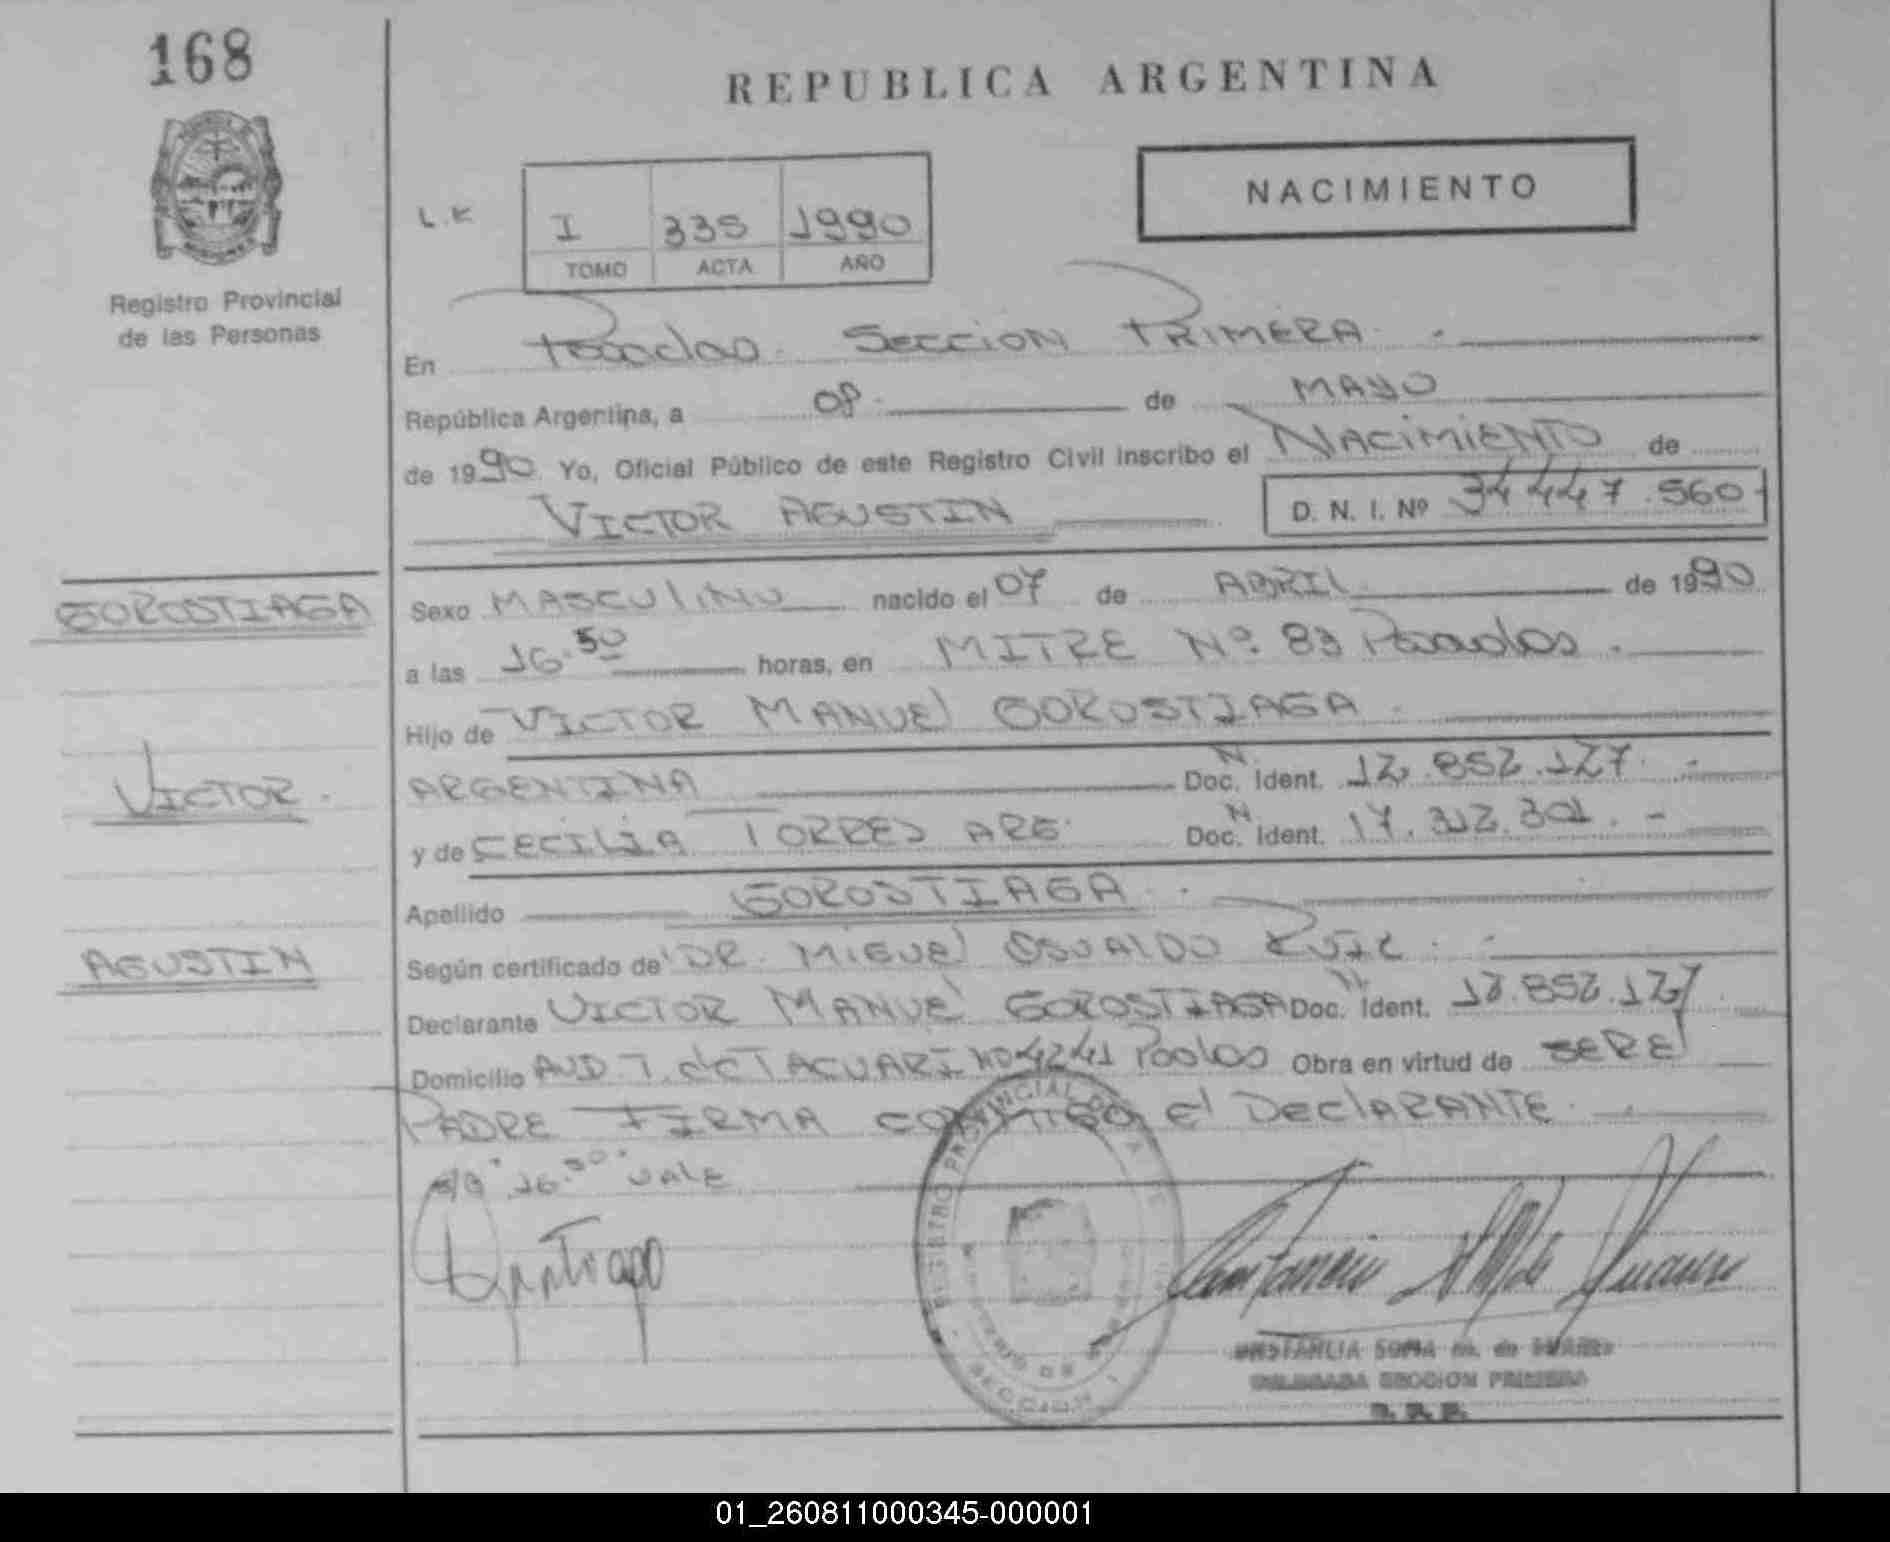 168
REPUBLICA ARGENTINA
NACIMIENTO
L.K
I 335 1990
TOMO ACTA AÑO
Registro Provincial
de las Personas
En Posadas Seccion Primera
República Argentina, a 08 de MAYO
de 1990 Yo, Oficial Público de este Registro Civil inscribo el NACIMIENTO de
VICTOR AGUSTIN D. N. I. Nº 34 447.560
GOROSTIAGA
VICTOR
AGUSTIN
Sexo MASCULINO nacido el 07 de ABRIL de 1990
a las 16.50 horas, en MITRE Nº 83 Posadas
Hijo de VICTOR MANUEL GOROSTIAGA
ARGENTINA Doc. N. Ident. 12.852.127
y de CECILIA TORRES ARG. Doc. N Ident. 17.312.301.-
Apellido GOROSTIAGA
Según certificado de DR. MIGUEL OSVALDO RUIZ
Declarante VICTOR MANUEL GOROSTIAGA Doc. N Ident. 12.852.127
Domicilio AVD T. de TACUARI No 4241 Posdas Obra en virtud de SER El
PADRE FIRMA CONMIGO El DECLARANTE
16.50 VALE
REGISTRO PROVINCIAL DE
SECCION 1
SOFIA de
SECCION PRIMERA
01_260811000345-000001